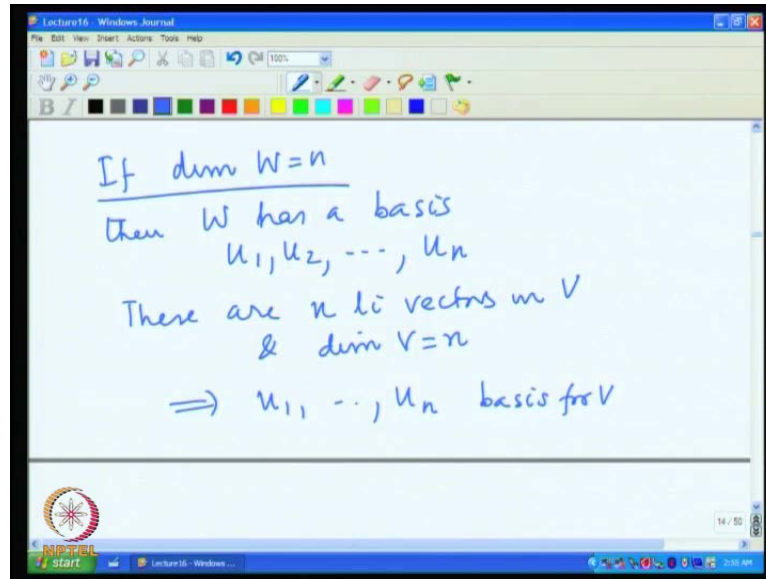 Lecture16 - Windows Journal
File Edit View Insert Actions Tools Help
100%
B I
If dim W = n
then W has a basis
u1, u2, ---, un
There are n li vectors in V
& dim V = n
⟹ u1, .., un basis for V
14 / 50
NPTEL
start Lecture16 - Windows ... 2:55 AM